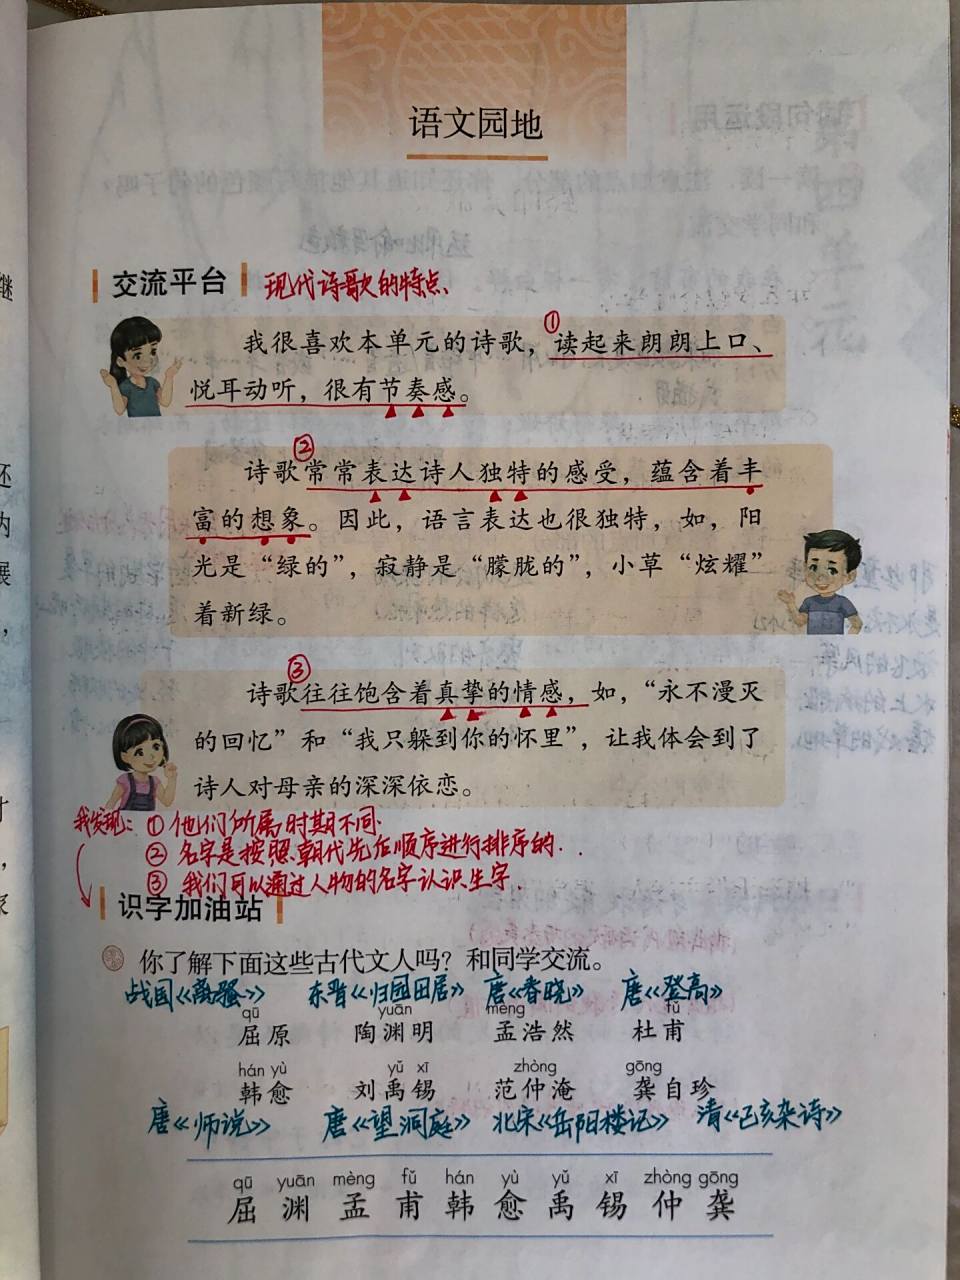 语文园地
交流平台 现代诗歌的特点
①
我很喜欢本单元的诗歌，读起来朗朗上口、
悦耳动听，很有节奏感。
②
诗歌常常表达诗人独特的感受，蕴含着丰
富的想象。因此，语言表达也很独特，如，阳
光是“绿的”，寂静是“朦胧的”，小草“炫耀”
着新绿。
③
诗歌往往饱含着真挚的情感，如，“永不漫灭
的回忆”和“我只躲到你的怀里”，让我体会到了
诗人对母亲的深深依恋。
我发现：①他们所属时期不同.
②名字是按照朝代先后顺序进行排序的..
③我们可以通过人物的名字认识生字.
识字加油站
你了解下面这些古代文人吗？和同学交流。
战国《离骚》 东晋《归园田居》 唐《春晓》 唐《登高》
qū yuān mèng fǔ
屈原 陶渊明 孟浩然 杜甫
hán yù yǔ xī zhòng gōng
韩愈 刘禹锡 范仲淹 龚自珍
唐《师说》 唐《望洞庭》 北宋《岳阳楼记》 清《己亥杂诗》
qū yuān mèng fǔ hán yù yǔ xī zhòng gōng
屈 渊 孟 甫 韩 愈 禹 锡 仲 龚